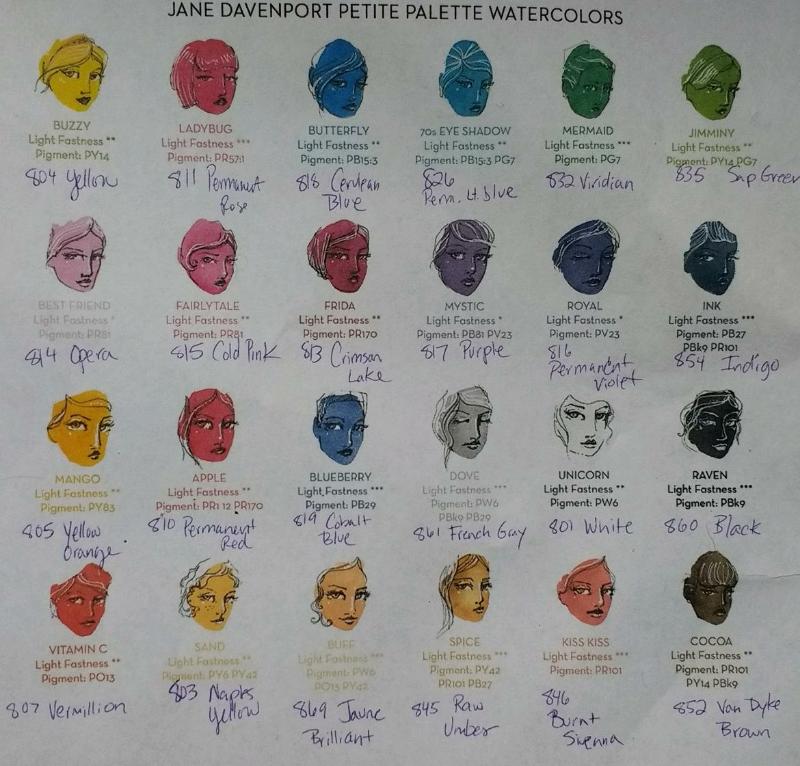 JANE DAVENPORT PETITE PALETTE WATERCOLORS
BUZZY
Light Fastness **
Pigment: PY14
804 Yellow
LADYBUG
Light Fastness ***
Pigment: PR57:1
811 Permanent
Rose
BUTTERFLY
Light Fastness **
Pigment: PB15:3
818 Cerulean
Blue
70s EYE SHADOW
Light Fastness **
Pigment: PB15:3 PG7
826
Perm. Lt. blue
MERMAID
Light Fastness ***
Pigment: PG7
832 Viridian
JIMMINY
Light Fastness **
Pigment: PY14 PG7
835 Sap Green
BEST FRIEND
Light Fastness *
Pigment: PR81
814 Opera
FAIRLYTALE
Light Fastness **
Pigment: PR81
815 Cold Pink
FRIDA
Light Fastness **
Pigment: PR170
813 Crimson
Lake
MYSTIC
Light Fastness *
Pigment: PB81 PV23
817 Purple
ROYAL
Light Fastness *
Pigment: PV23
816
Permanent
Violet
INK
Light Fastness ***
Pigment: PB27
PBk9 PR101
854 Indigo
MANGO
Light Fastness **
Pigment: PY83
805 Yellow
Orange
APPLE
Light Fastness **
Pigment: PR1 12 PR170
810 Permanent
Red
BLUEBERRY
Light Fastness ***
Pigment: PB29
819 Cobalt
Blue
DOVE
Light Fastness ***
Pigment: PW6
PBk9 PB29
861 French Gray
UNICORN
Light Fastness **
Pigment: PW6
801 White
RAVEN
Light Fastness ***
Pigment: PBk9
860 Black
VITAMIN C
Light Fastness **
Pigment: PO13
807 Vermillion
SAND
Light Fastness **
Pigment: PY6 PY42
803 Naples
Yellow
BUFF
Light Fastness ***
Pigment: PW6
PO13 PY42
869 Jaune
Brilliant
SPICE
Light Fastness ***
Pigment: PY42
PR101 PB27
845 Raw
Umber
KISS KISS
Light Fastness ***
Pigment: PR101
846
Burnt
Sienna
COCOA
Light Fastness **
Pigment: PR101
PY14 PBk9
852 Van Dyke
Brown